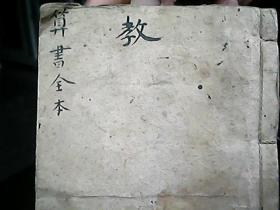 教
算書全本